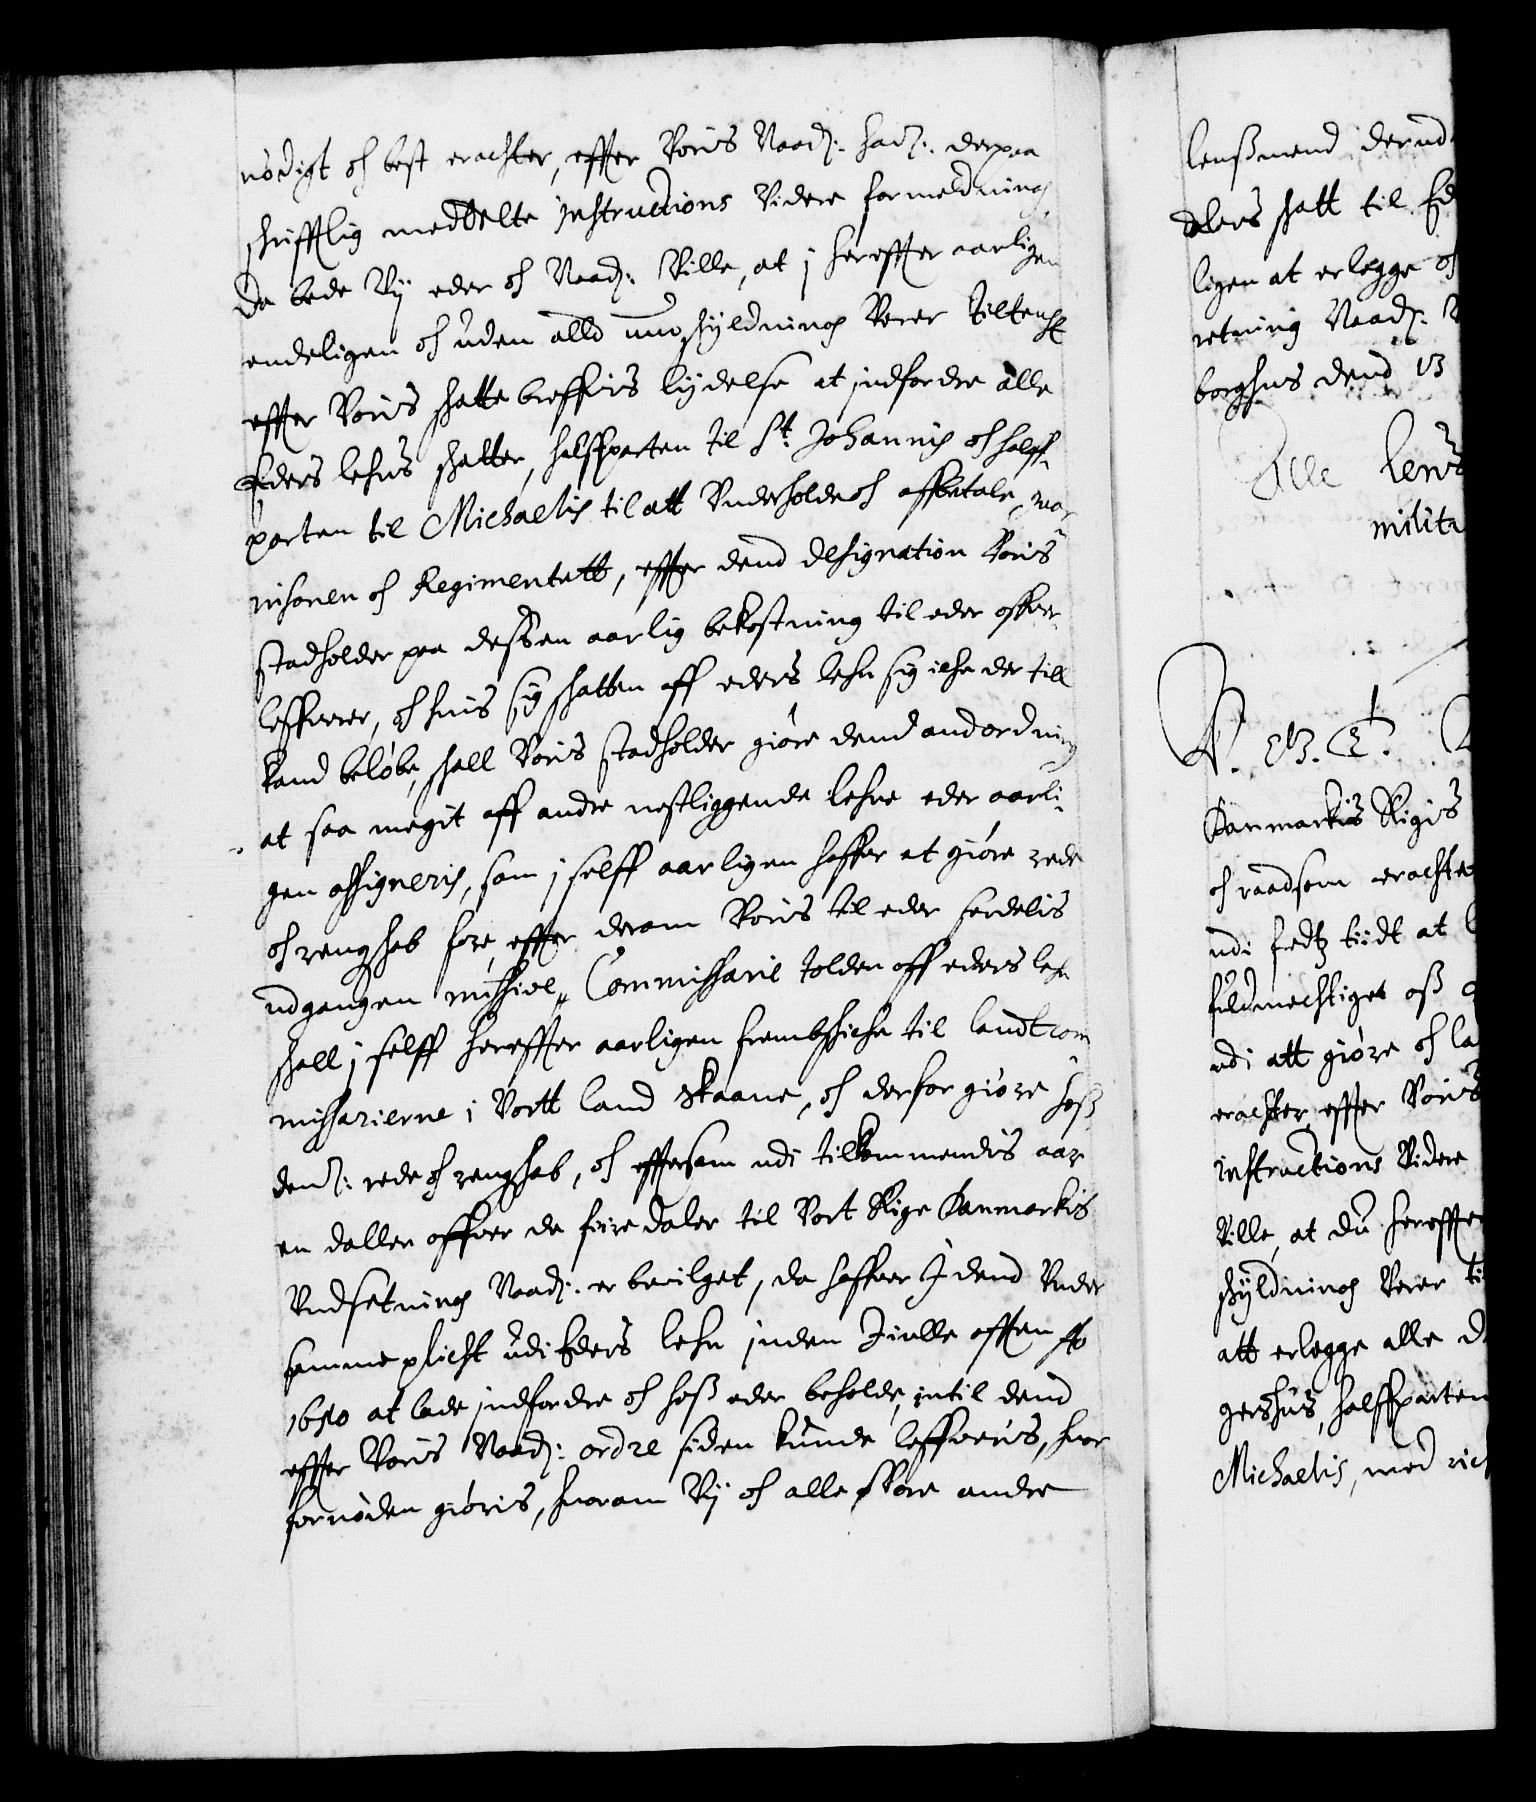 nødigt oc best erachter, effter Voris Naad: hau: derpaa
skrifftlig meddelte Instructions Videre formeldning
Da bede Vij eder oc Naad: Ville, at j hereffter aarligen
endeligen oc uden alld undskyldning Verer tiltenckt
effter Voris skatte breffvis lydelse at jndfordre alle
Eders lehns skatter, halffparten til St: Johannis oc halff-
parten til Michaelis til att Underholde oc affbetale, gar
nisonen oc Regimentett, effter dend designation Voris
stadholder paa dessen aarlig bekostning til eder offver-
leffverer, oc huis sig skatten aff eders lehn sig iche der till
kand beløbe, skall Voris stadholder giøre dend andordning
at saa megit aff andre nestliggende lehne eder aarli-
gen assigneris, som j selff aarligen haffver at giøre rede
oc rengskab fore, effter derom Voris til eder serdelis
udgangen missive, Commissarie tolden aff eders lehn
skall j selff hereffter aarligen frembskiche til landtcom
missarierne i Vortt land Skaane, oc derfor giøre hoss
dem: rede oc rengskab, oc efftersom udi tilkommendis aar
en daller offver de fiire daler til Vort Rige Danmarkis
Undsetning Naad: er bevilget, da haffver I dend Under
samme plicht udi Eders lehn jnden Iulle afften Ao
1650 at lade jndfordre oc hoss eder beholde, intil dend
effter Voris Naad: ordre siden kunde leffveris, huor
fornøden giøris, huorom Vij oc alle Vore andre
lenssmend derud
dlers skatt til Ed
ligen at erlegge oc
retning Naad: V
borghus dend 13
Alle lens
milita
Danmarkis Rigis
oc raadsom erachte
udi fredtz tiidt at
fuldmechtiget oss
udi att giøre oc la
erachter, effter Voris
instructions Videre
Ville, at du hereffter
skyldning Verer ti
att erlegge alle d
gershus, halffparten
Michaelis, med ric